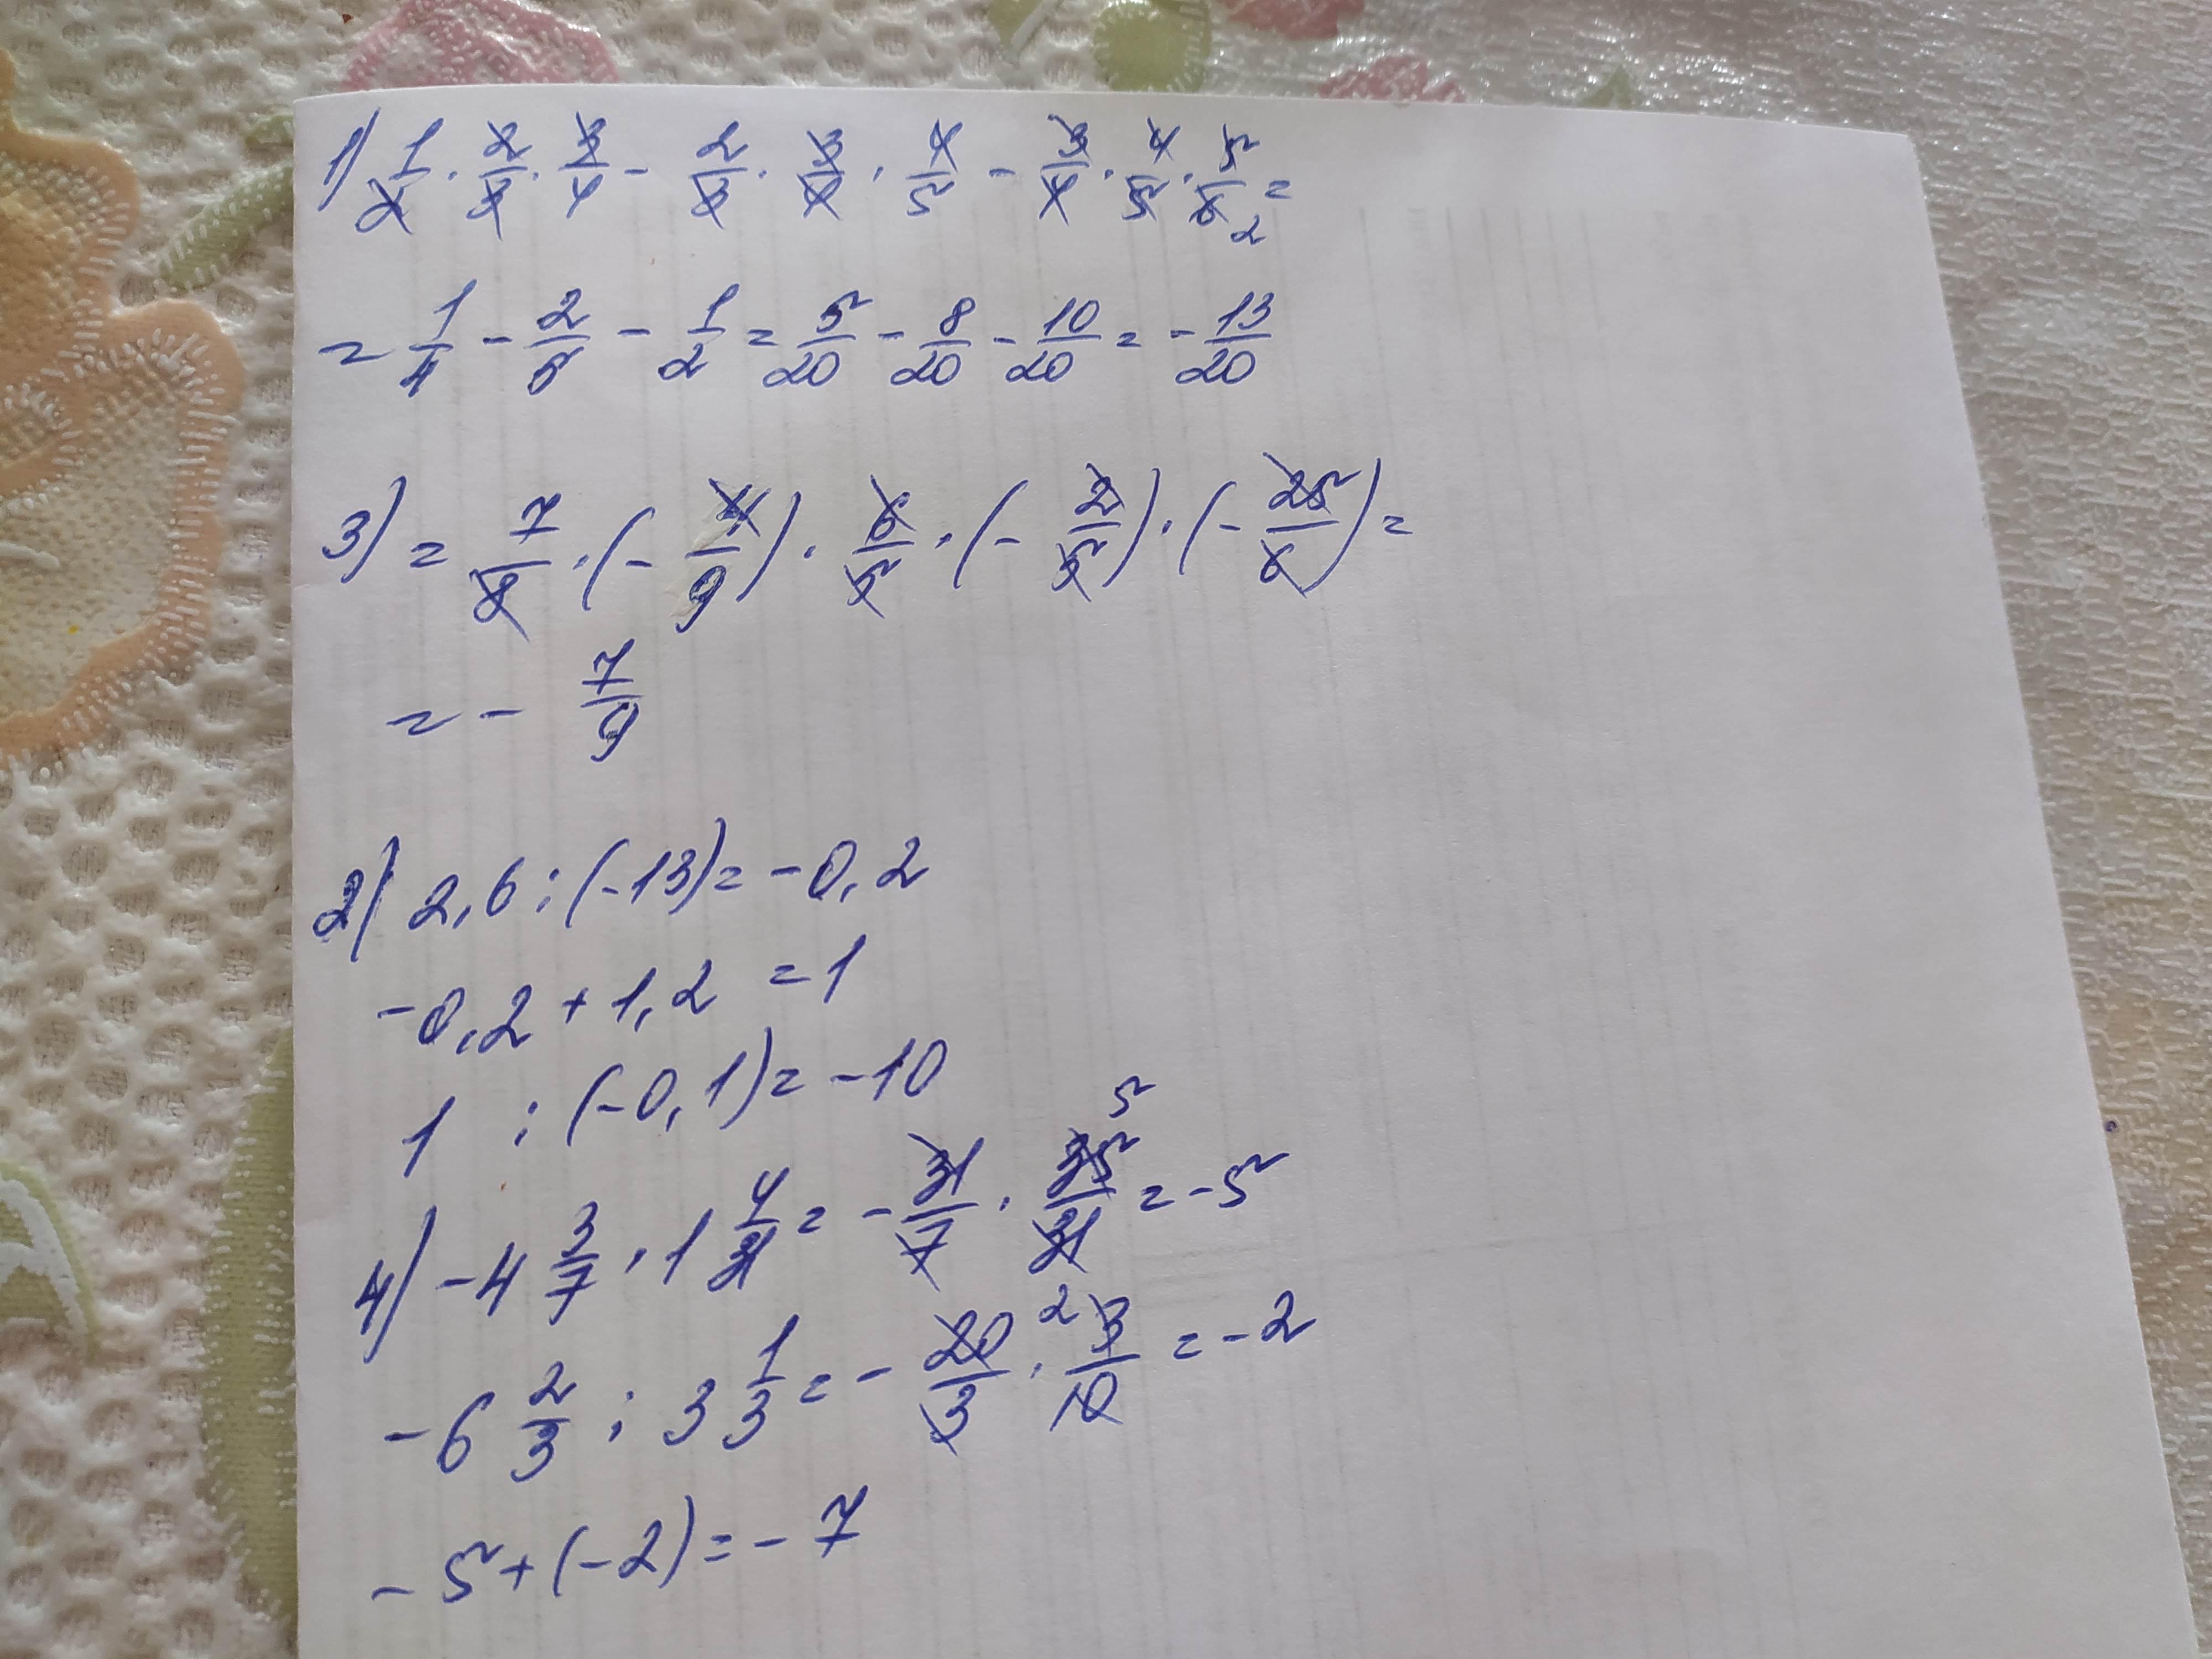 1) 1/2 · 2/3 · 3/4 - 2/3 · 3/4 · 4/5 - 3/4 · 4/5 · 5/6 2 =
= 1/4 - 2/5 - 1/2 = 5/20 - 8/20 - 10/20 = - 13/20
3) = 7/8 · (- 4/9) · 6/5 · (- 2/5) · (- 25/6) =
= - 7/9
2) 2,6 : (-13) = -0,2
-0,2 + 1,2 = 1
1 : (-0,1) = -10
4) -4 3/7 · 1 4/31 = - 31/7 · 35/31 5 = -5
-6 2/3 : 3 1/3 = - 20/3 2 · 3/10 = -2
-5 + (-2) = -7